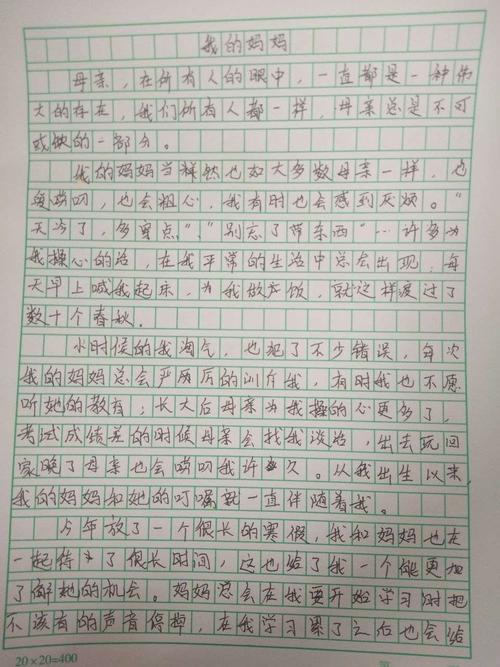 我的妈妈
母亲，在所有人的眼中，一直都是一种伟
大的存在，我们所有人都一样，母亲总是不可
或缺的一部分。
我的妈妈当然也如大多数母亲一样，也
爱唠叨，也会粗心，我有时也会感到厌烦。“
天冷了，多穿点”，“别忘了带东西”…许多为
我操心的话，在我平常的生活中总会出现，每
天早上喊我起床，为我做产饭，就这样渡过了
数十个春秋。
小时候的我淘气，也犯了不少错误，每次
我的妈妈总会严厉的训斥我，有时我也不愿
听她的教育；长大后母亲为我操的心更多了，
考试成绩差的时候母亲会找我谈话，出去玩回
家晚了母亲也会唠叨我许久。从我出生以来，
我的妈妈和她的叮嘱就一直伴随着我。
今年放了一个很长的寒假，我和妈妈也在
一起待了很长时间，这也给了我一个能更加
了解她的机会。妈妈总会在我要开始学习时把
不该有的声音停掉，在我学习累了之后也会给
20×20=400